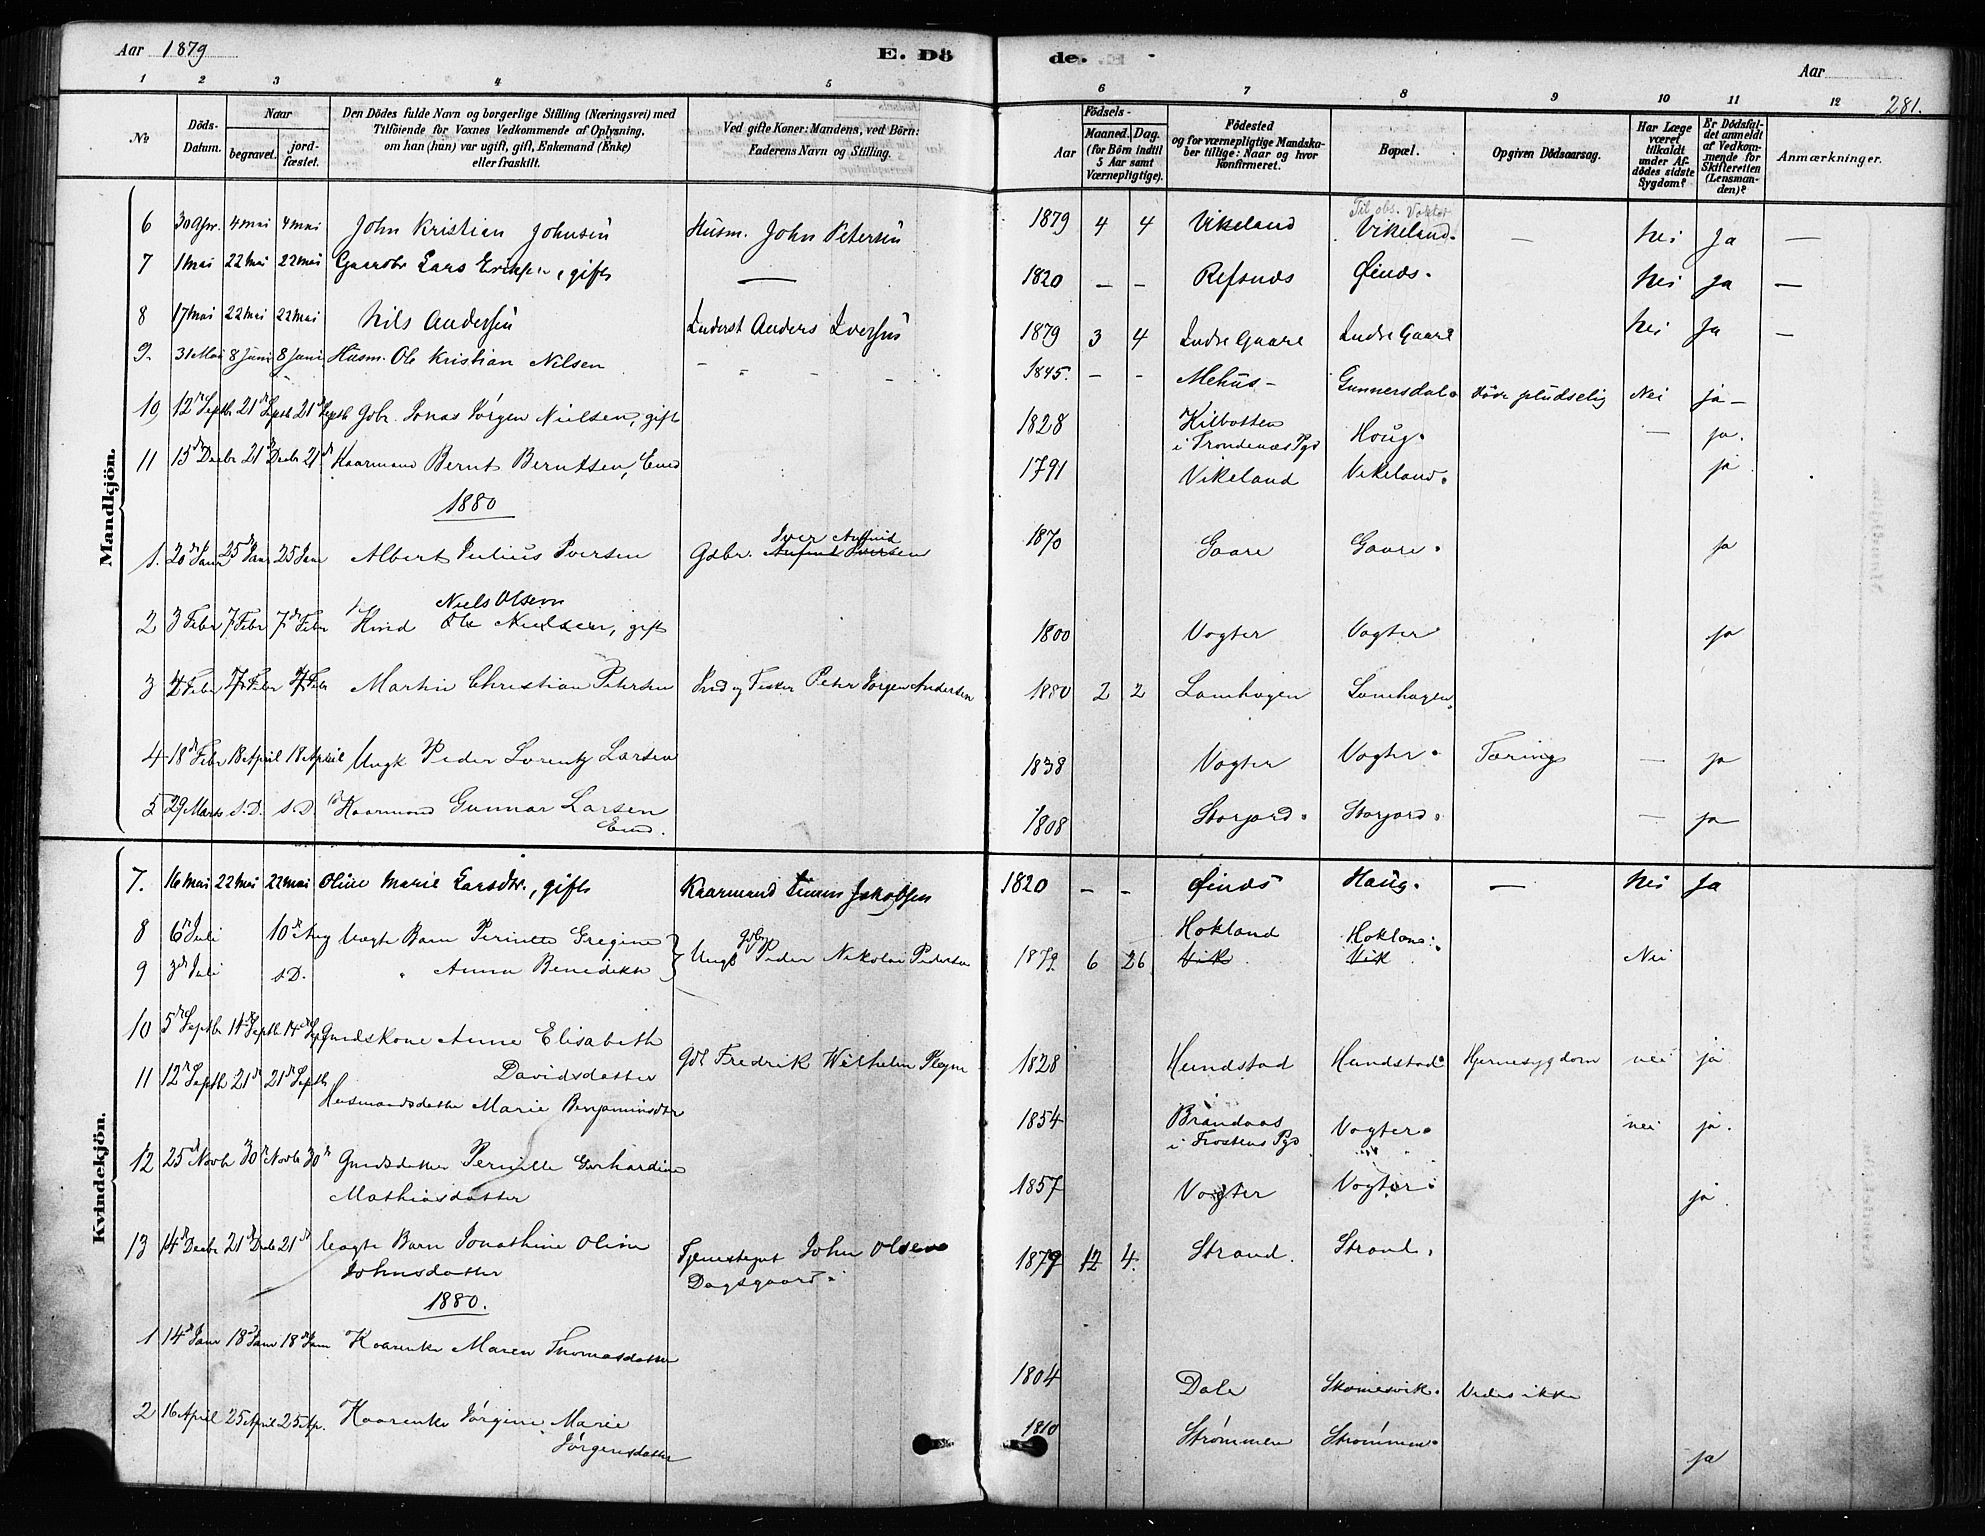 Aar 1879 E. Dö de. Aar
281.
1 2 3 4 5 6 7 8 9 10 11 12
No
Döds-Datum.
Naar
begravet. jordfæstet.
Den Dödes fulde Navn og borgerlige Stilling (Næringsvei) med
Tilföiende for Voxnes Vedkommende af Oplysning,
om han (hun) var ugift, gift, Enkemand (Enke)
eller fraskilt.
Ved gifte Koner: Mandens, ved Börn:
Faderens Navn og Stilling.
Födsels-
Aar Maaned. Dag.
(for Börn indtil
5 Aar samt
Værnepligtige).
Födested
og for værnepligtige Mandska-
ber tillige: Naar og hvor
Konfirmeret.
Bopæl.
Opgiven Dödsaarsag.
Har Læge
været
tilkaldt
under Af-
dödes sidste
Sygdom?
Er Dödsfal-
det anmeldt
af Vedkom-
mende for
Skifteretten
(Lensman-
den)?
Anmærkninger.
Mandkjön.
6 30 Apr. 4 mai 4 mai John Kristian Johnsen Husm. John Petersen 1879 4 4 Vikeland Vikeland. — Nei Ja —
7 1 mai 22 mai 22 mai Gaardbr Lars , gift — 1820 — — Refsnes — Nei Ja —
8 17 mai 22 mai 22 mai Nils Andersen Inderst Anders Iversen 1879 3 4 Indre Gaare Indre Gaare Nei Ja —
9. 31 Mai 8 Juni 8 Juni Husm. Ole Kristian Nilsen 1845. - - Mehus Gunnersdal. Døde pludselig Nei ja
10 12te Septb 21de Septb 21de Septb Gdbr. Jonas Jørgen Nielsen, gift 1828 Kilbotten
i Trondenæs Pgd Houg. — ja.
11 15de Decbr 21de Decbr 21de Kaarmand Bernt Berntsen, Emd 1791 Vikeland Vikeland. ja
1880
1. 20de Janr 25de Janr 25 Jan Albert Julius Iversen Gdbr. Iver Arnfind
Arnfind Iversen 1870 Gaare Gaare. ja
2 3 Febr 7 Febr 7de Febr Niels Olsen
Hmd Ole Nielsen, gift 1800 Vogter Vogter ja
3 4 Febr 7 Febr 7 Febr Martin Christian Petersen Ind og Fisker Peter Jørgen Andersen 1880 2 2 Lamhagen Lamhagen
4 18de Febr 18 April 18 April Ungk Peder Lorentz Larsen 1838 Vogter Vogter. Tæring — ja
5 29 Marts s.D. s.D. Kaarmand Gunnar Larsen
Emd. 1808 Storjord. Storjord. — ja
Kvindekjön.
7. 16 mai 22 mai 22 mai Oline Marie Larsdtr., gift Kaarmand Simon Jakobsen 1820 — — Haug. — Nei Ja
8 6te Juli 10de Aug Uægte Barn Pernille Gregine
9 3de Juli s.D. " Anna Benedikte Ungk Gdbr Peder Nikolai Pedersen 1879 6 26 Hokland
Vik Hokland.
Vik Nei
10 5te Septbr 14de Septb 14de Sep Gmdskone Anne Elisabeth
Davidsdatter Gdb Fredrik Wilhelm Pleym 1828 Hundstad Hundstad Hjernesygdom nei ja
11 12te Septb 21de 21de Septb Husmandsdatter Marie Benjaminsdtr 1854 Brandaas
i Trostens Pgd Vogter. nei ja.
12 25de Novbr 30te Novbr 30te Gmdsdatter Pernille Gerhardine
Mathiasdatter 1857 Vogter Vogter. ja
13 14de Decbr 21de Decbr 21de Uægte Barn Jonathine Oline
Johnsdatter Tjenestegut John Olsen
Dagsgaard 1879 12 4. Strand. Strand.
1880.
1 14de Janr 18de Janr 18de Jan Kaarenke Maren Thomasdatter 1804 Dale Skomesvik. Vides ikke
2 16 April 25 April 25 Ap. Kaarenke Jørgine Marie
Jørgensdatter 1810 Strømmen Strømmen. ja